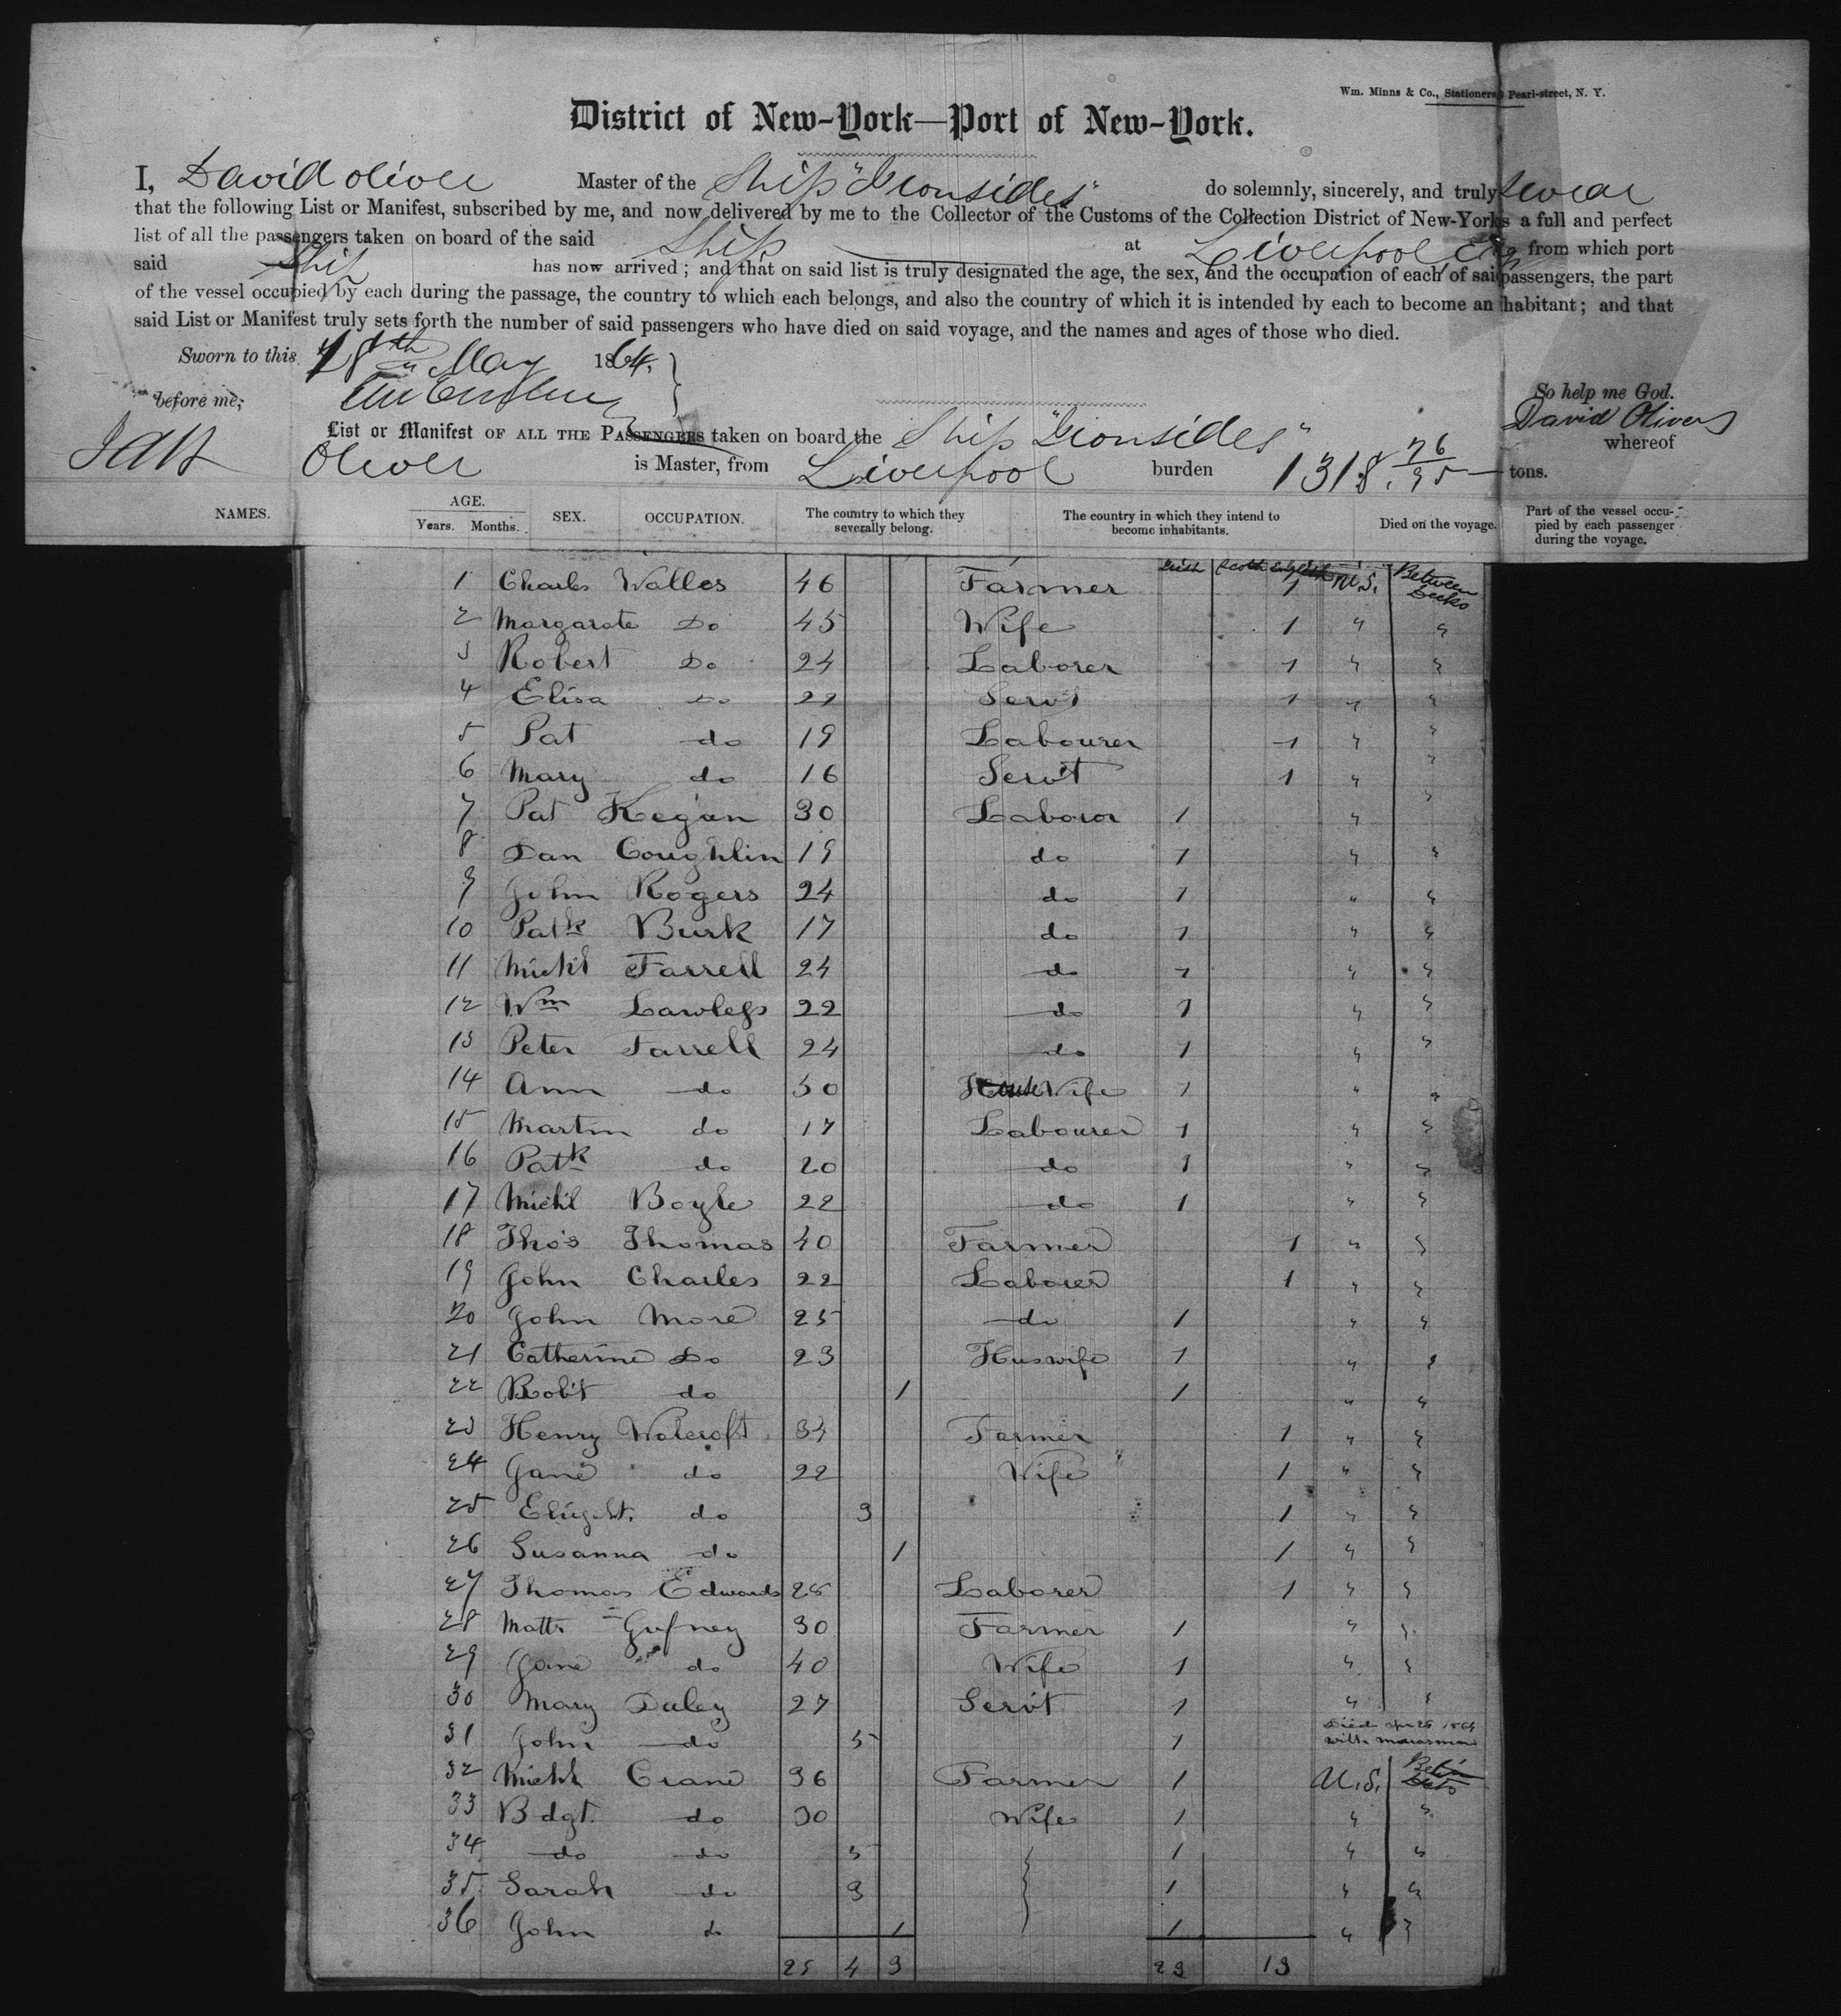 Wm. Minns & Co., Stationers, Pearl-street, N. Y.
District of New-York—Port of New-York.
I, David Oliver Master of the Ship "Ironsides" do solemnly, sincerely, and truly swear
that the following List or Manifest, subscribed by me, and now delivered by me to the Collector of the Customs of the Collection District of New-York, is a full and perfect
list of all the passengers taken on board of the said Ship at Liverpool from which port
said Ship has now arrived; and that on said list is truly designated the age, the sex, and the occupation of each of said passengers, the part
of the vessel occupied by each during the passage, the country to which each belongs, and also the country of which it is intended by each to become an inhabitant; and that
said List or Manifest truly sets forth the number of said passengers who have died on said voyage, and the names and ages of those who died.
Sworn to this 18th May 1864.
before me,
So help me God.
David Oliver
List or Manifest OF ALL THE PASSENGERS taken on board the Ship "Ironsides" whereof
Oliver is Master, from Liverpool burden 1318. 76/95 tons.
NAMES. AGE. Years. Months. SEX. OCCUPATION. The country to which they severally belong. The country in which they intend to become inhabitants. Died on the voyage. Part of the vessel occupied by each passenger during the voyage.
Irish Scotch English
1 Charles Walles 46 Farmer 1 U.S. Between Decks
2 Margarate Do 45 Wife 1 " "
3 Robert Do 24 Laborer 1 " "
4 Elisa Do 22 Servt 1 " "
5 Pat do 19 Labourer 1 " "
6 Mary do 16 Servt 1 " "
7 Pat Kegan 30 Laboror 1 " "
8 Dan Coughlin 19 do 1 " "
9 John Rogers 24 do 1 " "
10 Patk Burk 17 do 1 " "
11 Michl Farrell 24 do 1 " "
12 Wm Lawless 22 do 1 " "
13 Peter Farrell 24 do 1 " "
14 Ann do 50 Wife 1 " "
15 Martin do 17 Labourer 1 " "
16 Patk do 20 do 1 " "
17 Michl Boyle 22 do 1 " "
18 Thos Thomas 40 Farmer 1 " "
19 John Charles 22 Laborer 1 " "
20 John More 25 do 1 " "
21 Catherine Do 23 Huswife 1 " "
22 Robt do 1 1 " "
23 Henry Wolcroft 34 Farmer 1 " "
24 Jane do 22 Wife 1 " "
25 do 3 1 " "
26 Susanna do 1 1 " "
27 Thomas Edwards 28 Laborer 1 " "
28 Matts Gufney 30 Farmer 1 " "
29 Jane do 40 Wife 1 " "
30 Mary Daley 27 Servt 1 " "
31 John do 5 1 Died Apr 28 1864 with marasmus
32 Michl Crane 36 Farmer 1 U.S. Betn Decks
33 Bdgt. do 30 Wife 1 " "
34 do do 5 1 " "
35 Sarah do 3 1 " "
36 John do 1 1 " "
4 3 23 13